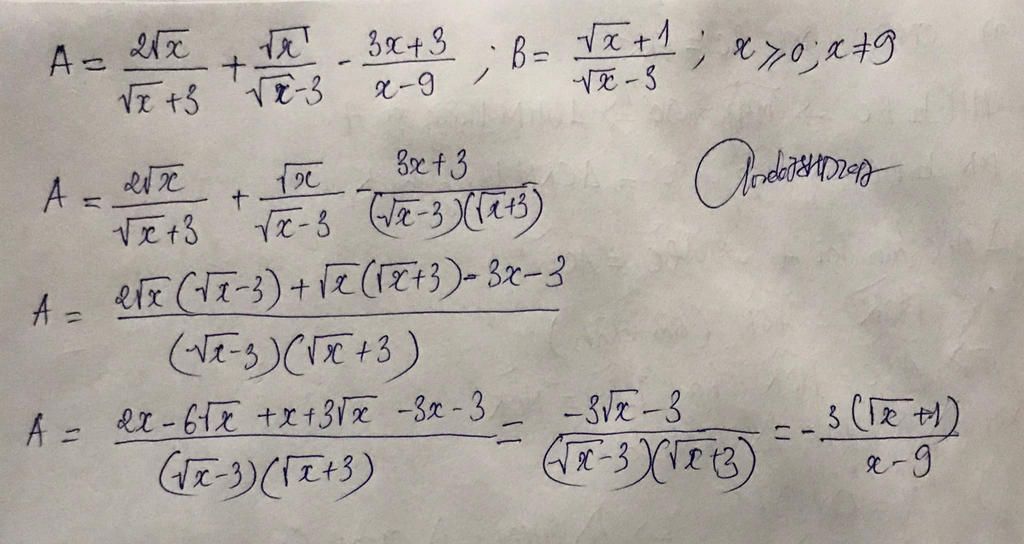 A = 2√x/(√x+3) + √x/(√x-3) - (3x+3)/(x-9) ; B = (√x+1)/(√x-3) ; x ⩾ 0; x ≠ 9
A = 2√x/(√x+3) + √x/(√x-3) - (3x+3)/((√x-3)(√x+3))
A = (2√x(√x-3)+√x(√x+3)-3x-3)/((√x-3)(√x+3))
A = (2x-6√x+x+3√x-3x-3)/((√x-3)(√x+3)) = (-3√x-3)/((√x-3)(√x+3)) = -3(√x+1)/(x-9)